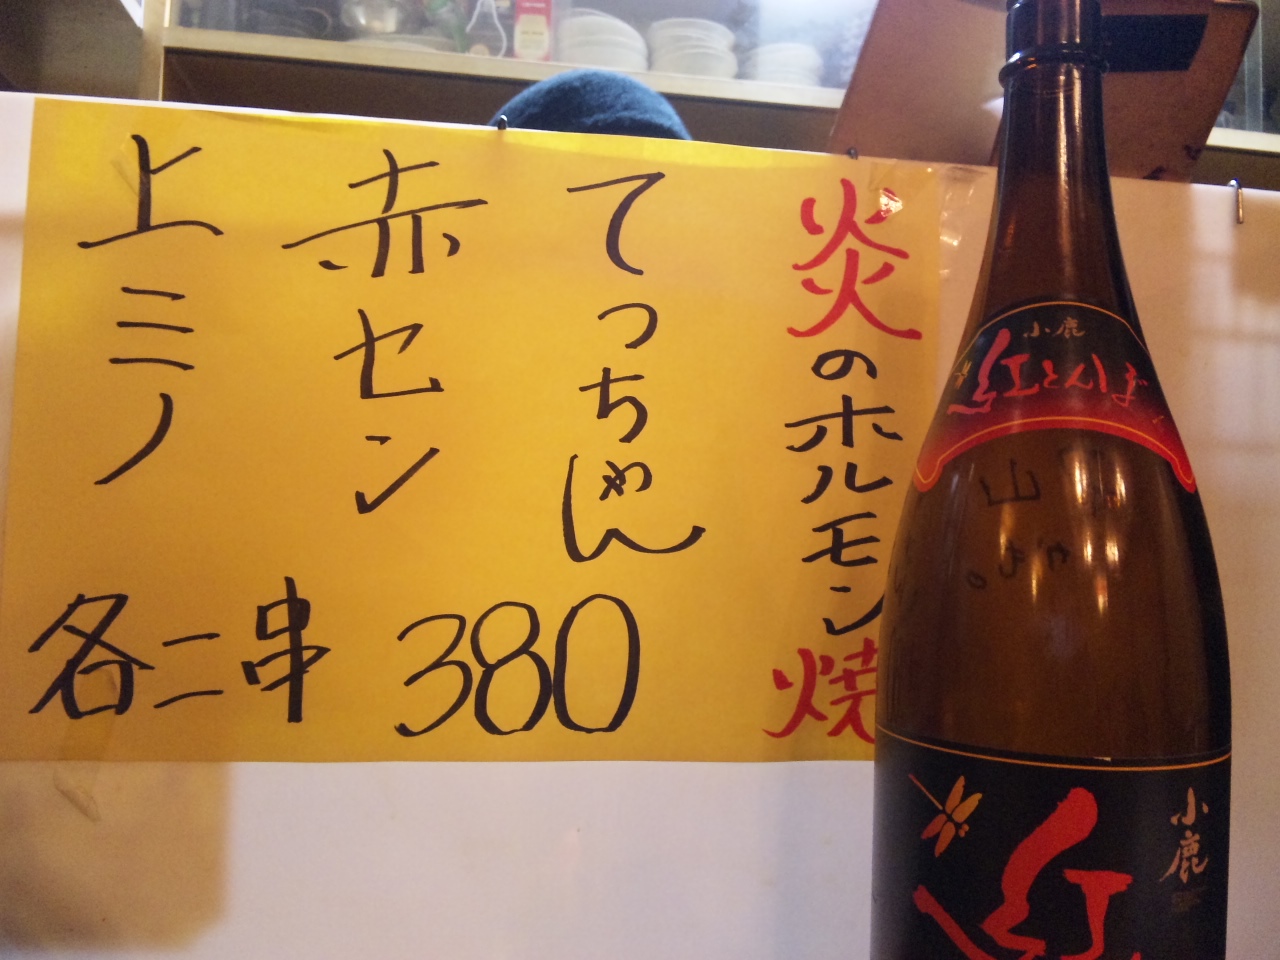 炎のホルモン焼
てっちゃん
赤セン
上ミノ
各二串 380
小鹿
紅とんぼ
小鹿
紅